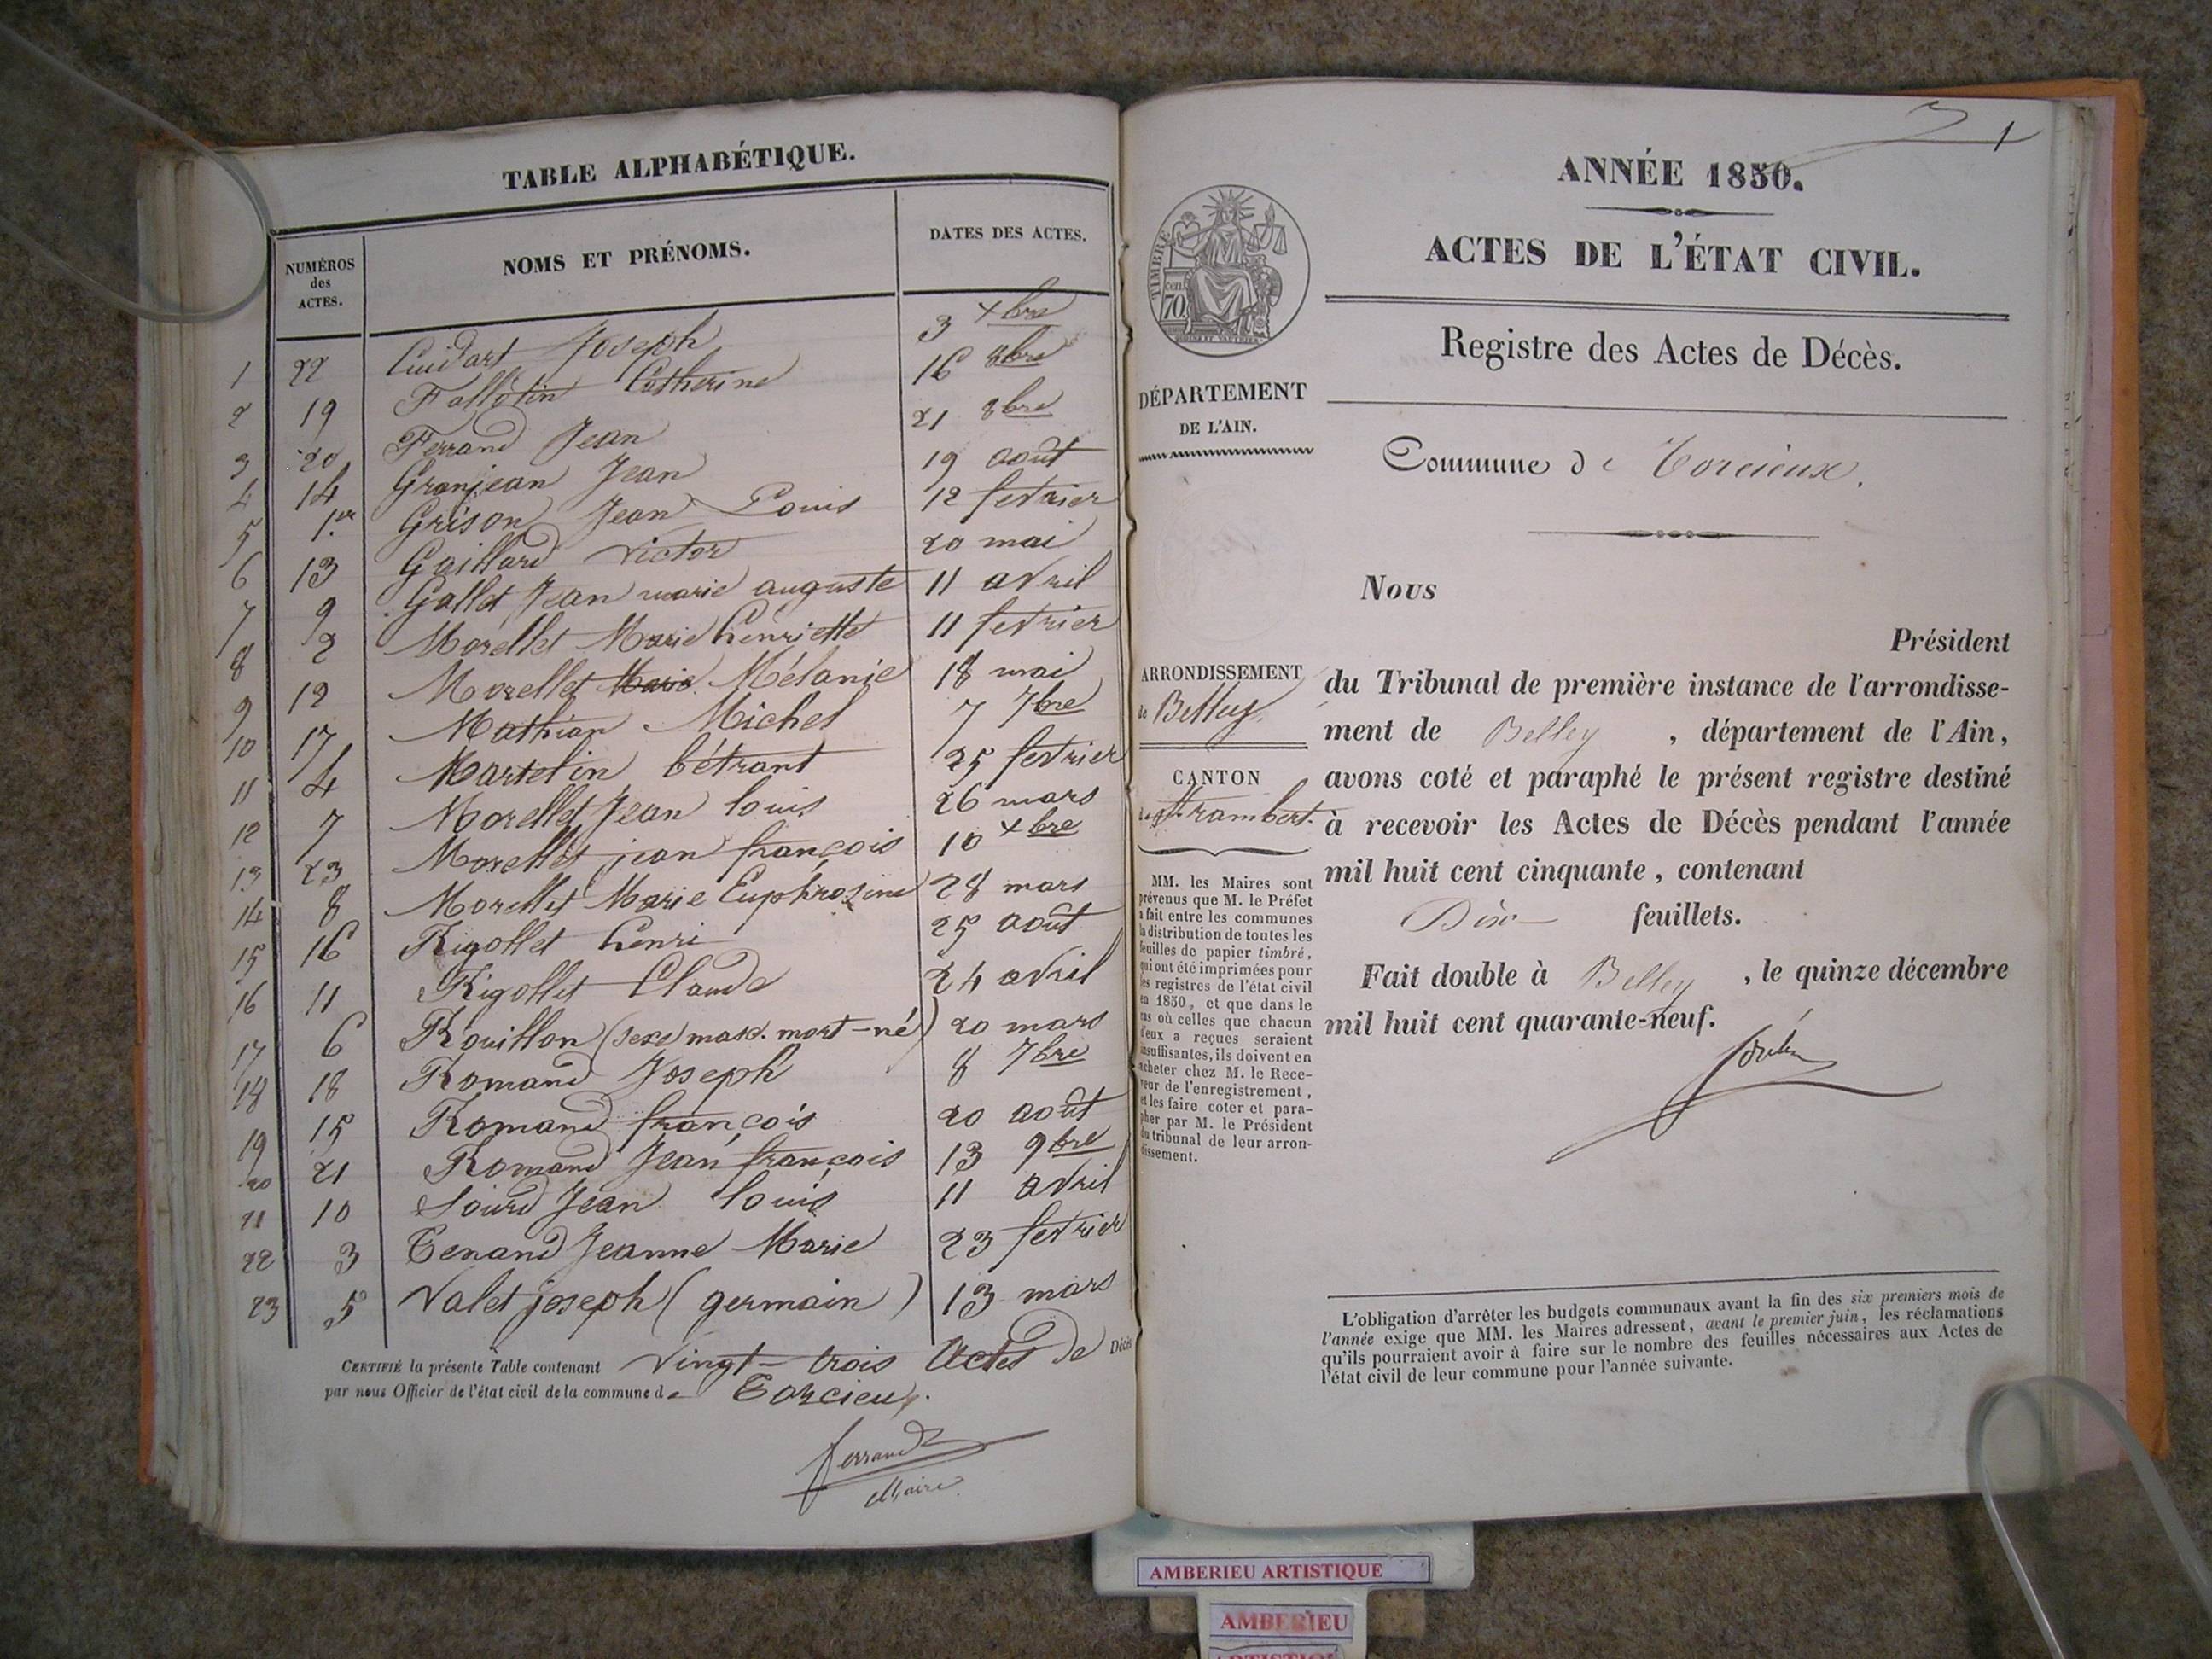 TABLE ALPHABÉTIQUE.
NUMÉROS
des
ACTES.
NOMS ET PRÉNOMS.
DATES DES ACTES.
1 22 Cuidart Joseph 3 Xbre
2 19 Fallotin Catherine 16 8bre
3 20 Ferrand Jean 21 8bre
4 14 Granjean Jean 19 août
5 1.er Grison Jean Louis 12 fevrier
6 13 Gaillard Victor 20 mai
7 9 Gallet Jean marie auguste 11 avril
8 2 Morellet Marie henriette 11 fevrier
9 12 Morellet Marie Mélanie 18 mai
10 17 Mathian Michel 7 7bre
11 4 Martelin bétrant 25 fevrier
12 7 Morellet Jean louis 26 mars
13 23 Morellet jean françois 10 Xbre
14 8 Morellet Marie Euphrosine 28 mars
15 16 Rigollet henri 25 août
16 11 Rigollet Claude 24 avril
17 6 Rouillon (sexe masc. mort-né) 20 mars
18 18 Romand Joseph 8 7bre
19 15 Romand françois 20 août
20 21 Romand Jean françois 13 9bre
21 10 Sourd Jean louis 11 avril
22 3 Tenand Jeanne Marie 23 fevrier
23 5 Valet joseph (germain) 13 mars
CERTIFIÉ la présente Table contenant Vingt-trois Actes de Décès
par nous Officier de l'état civil de la commune de Torcieu.
ferrand
Maire
1
ANNÉE 1850.
ACTES DE L'ÉTAT CIVIL.
Registre des Actes de Décès.
TIMBRE
cen.
70
DÉPARTEMENT
DE L'AIN.
Commune de Torcieux.
ARRONDISSEMENT
de Belley
CANTON
de St rambert.
MM. les Maires sont
prévenus que M. le Préfet
a fait entre les communes
la distribution de toutes les
feuilles de papier timbré,
qui ont été imprimées pour
les registres de l'état civil
en 1850, et que dans le
cas où celles que chacun
d'eux a reçues seraient
insuffisantes, ils doivent en
acheter chez M. le Rece-
veur de l'enregistrement,
et les faire coter et para-
pher par M. le Président
du tribunal de leur arron-
dissement.
Nous
Président
du Tribunal de première instance de l'arrondisse-
ment de Belley, département de l'Ain,
avons coté et paraphé le présent registre destiné
à recevoir les Actes de Décès pendant l'année
mil huit cent cinquante, contenant
Dix feuillets.
Fait double à Belley, le quinze décembre
mil huit cent quarante-neuf.
L'obligation d'arrêter les budgets communaux avant la fin des six premiers mois de
l'année exige que MM. les Maires adressent, avant le premier juin, les réclamations
qu'ils pourraient avoir à faire sur le nombre des feuilles nécessaires aux Actes de
l'état civil de leur commune pour l'année suivante.
AMBERIEU ARTISTIQUE
AMBERIEU
ARTISTIQUE